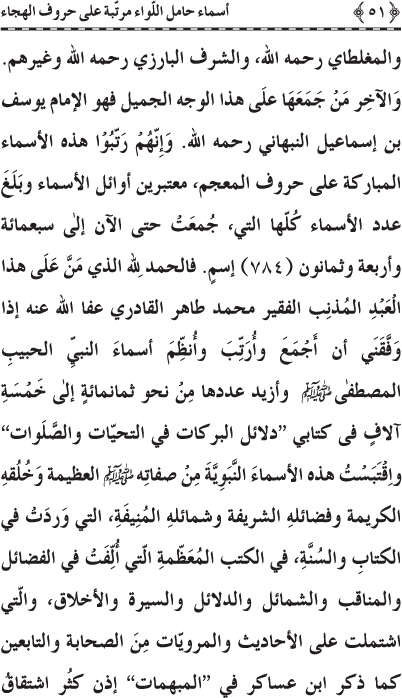 ﴿٥١﴾ أسماء حامل اللّواء مرتّبة على حروف الهجاء
والمغلطاي رحمه الله، والشرف البارزي رحمه الله وغيرهم.
وَالآخِر مَنْ جَمَعَهَا علَى هذا الوجه الجميل فهو الإمام يوسف
بن إسماعيل النبهاني رحمه الله. وَإِنّهُمْ رَتّبُوْا هذه الأسماء
المباركة على حروف المعجم، معتبرين أوائل الأسماء وبَلَغَ
عدد الأسماء كُلّها التي، جُمعَتْ حتى الآن إلٰى سبعمائة
وأربعة وثمانون (٧٨٤) إسمٍ. فالحمد لِله الذي مَنَّ عَلَى هذا
الْعَبْدِ المُذنِب الفقير محمد طاهر القادري عفا الله عنه إذا
وَفَّقَنَي أن أَجْمَعَ وأُرَتِّبَ وأُنظِّمَ أسماءَ النبيِّ الحبيبِ
المصطفٰى ﷺ وأزيد عددها مِنْ نحو ثمانمائةٍ إلٰى خَمْسَةِ
آلافٍ فى كتابي ”دلائل البركات في التحيّات والصَّلَوات“
واِقْتَبَسْتُ هذه الأسماءَ النَّبَوِيَّةَ مِنْ صفاتِه ﷺ العظيمة وَخُلُقهِ
الكريمة وفضائلهِ الشريفة وشمائلهِ المُنِيفَةِ، التي وَرَدَتْ في
الكتابِ والسُنَّةِ، في الكتب المُعَظّمةِ الّتي أُلِّفَتْ في الفضائل
والمناقب والشمائل والدلائل والسيرة والأخلاق، والّتي
اشتملت على الأحاديث والمرويّات مِنَ الصحابة والتابعين
كما ذكر ابن عساكر في ”المبهمات“ إذن كثُر اشتقاقُ